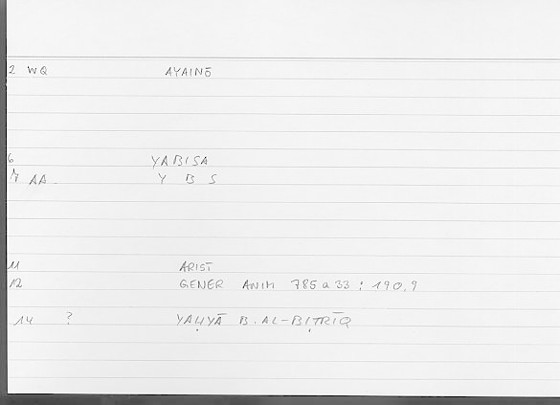 2 WQ AYAINŌ
6 YABISA
7 AA Y B S
11 ARIST
12 GENER ANIM 785 a 33 : 190,9
14 ? YAḤYĀ B. AL-BIṬRĪQ